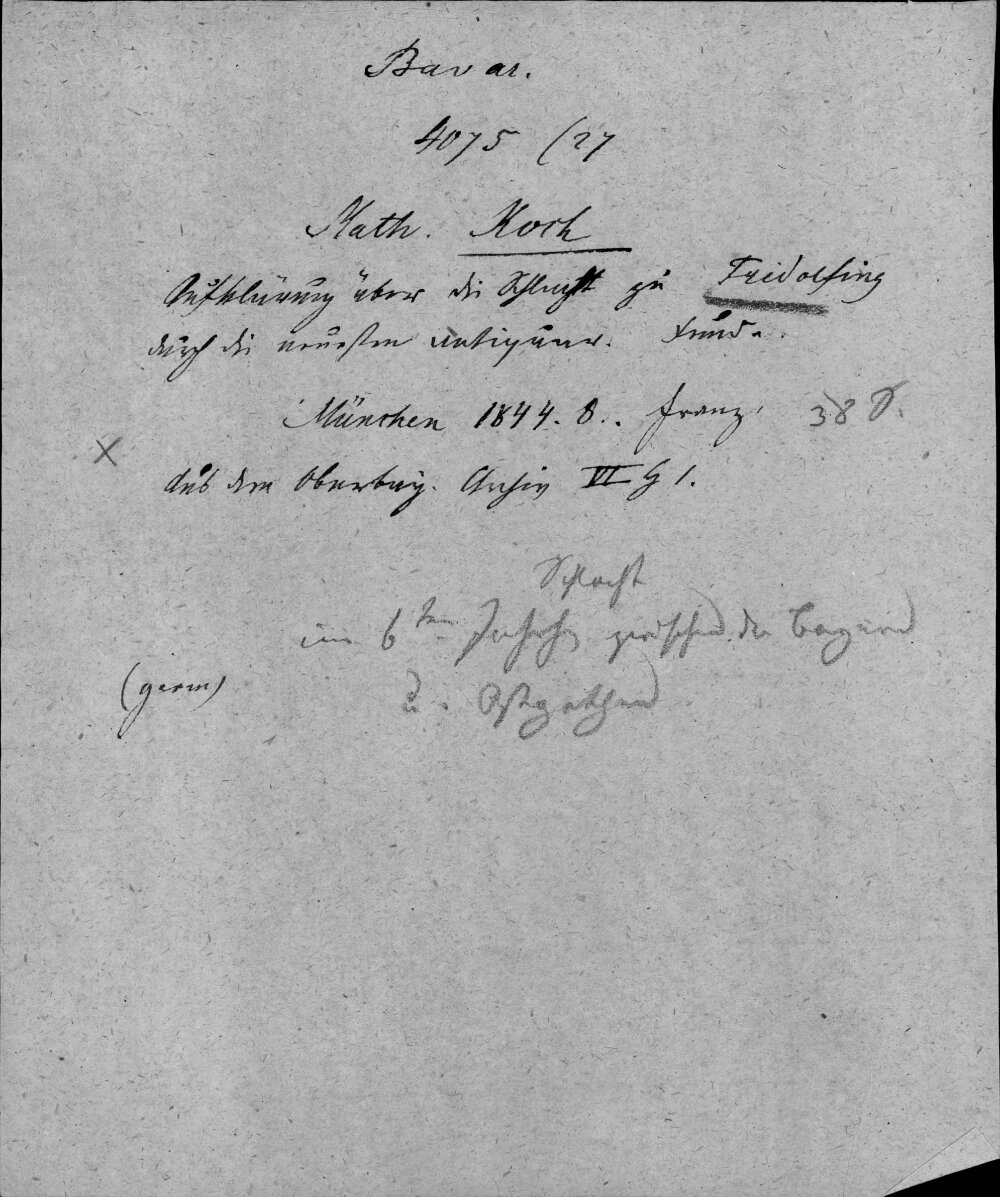 Bavar.
4075 (27
Math. Koch
Aufklärung über die Schlacht zu Fridolfing
durch die neuesten antiquar. Funde.
München 1844. 8.. Franz. 38 S.
X
Aus dem Oberbay. Archiv VI H 1.
Schlacht
im 6ten Jahrh zwischen den Bayern
(germ)
u. Ostgothen